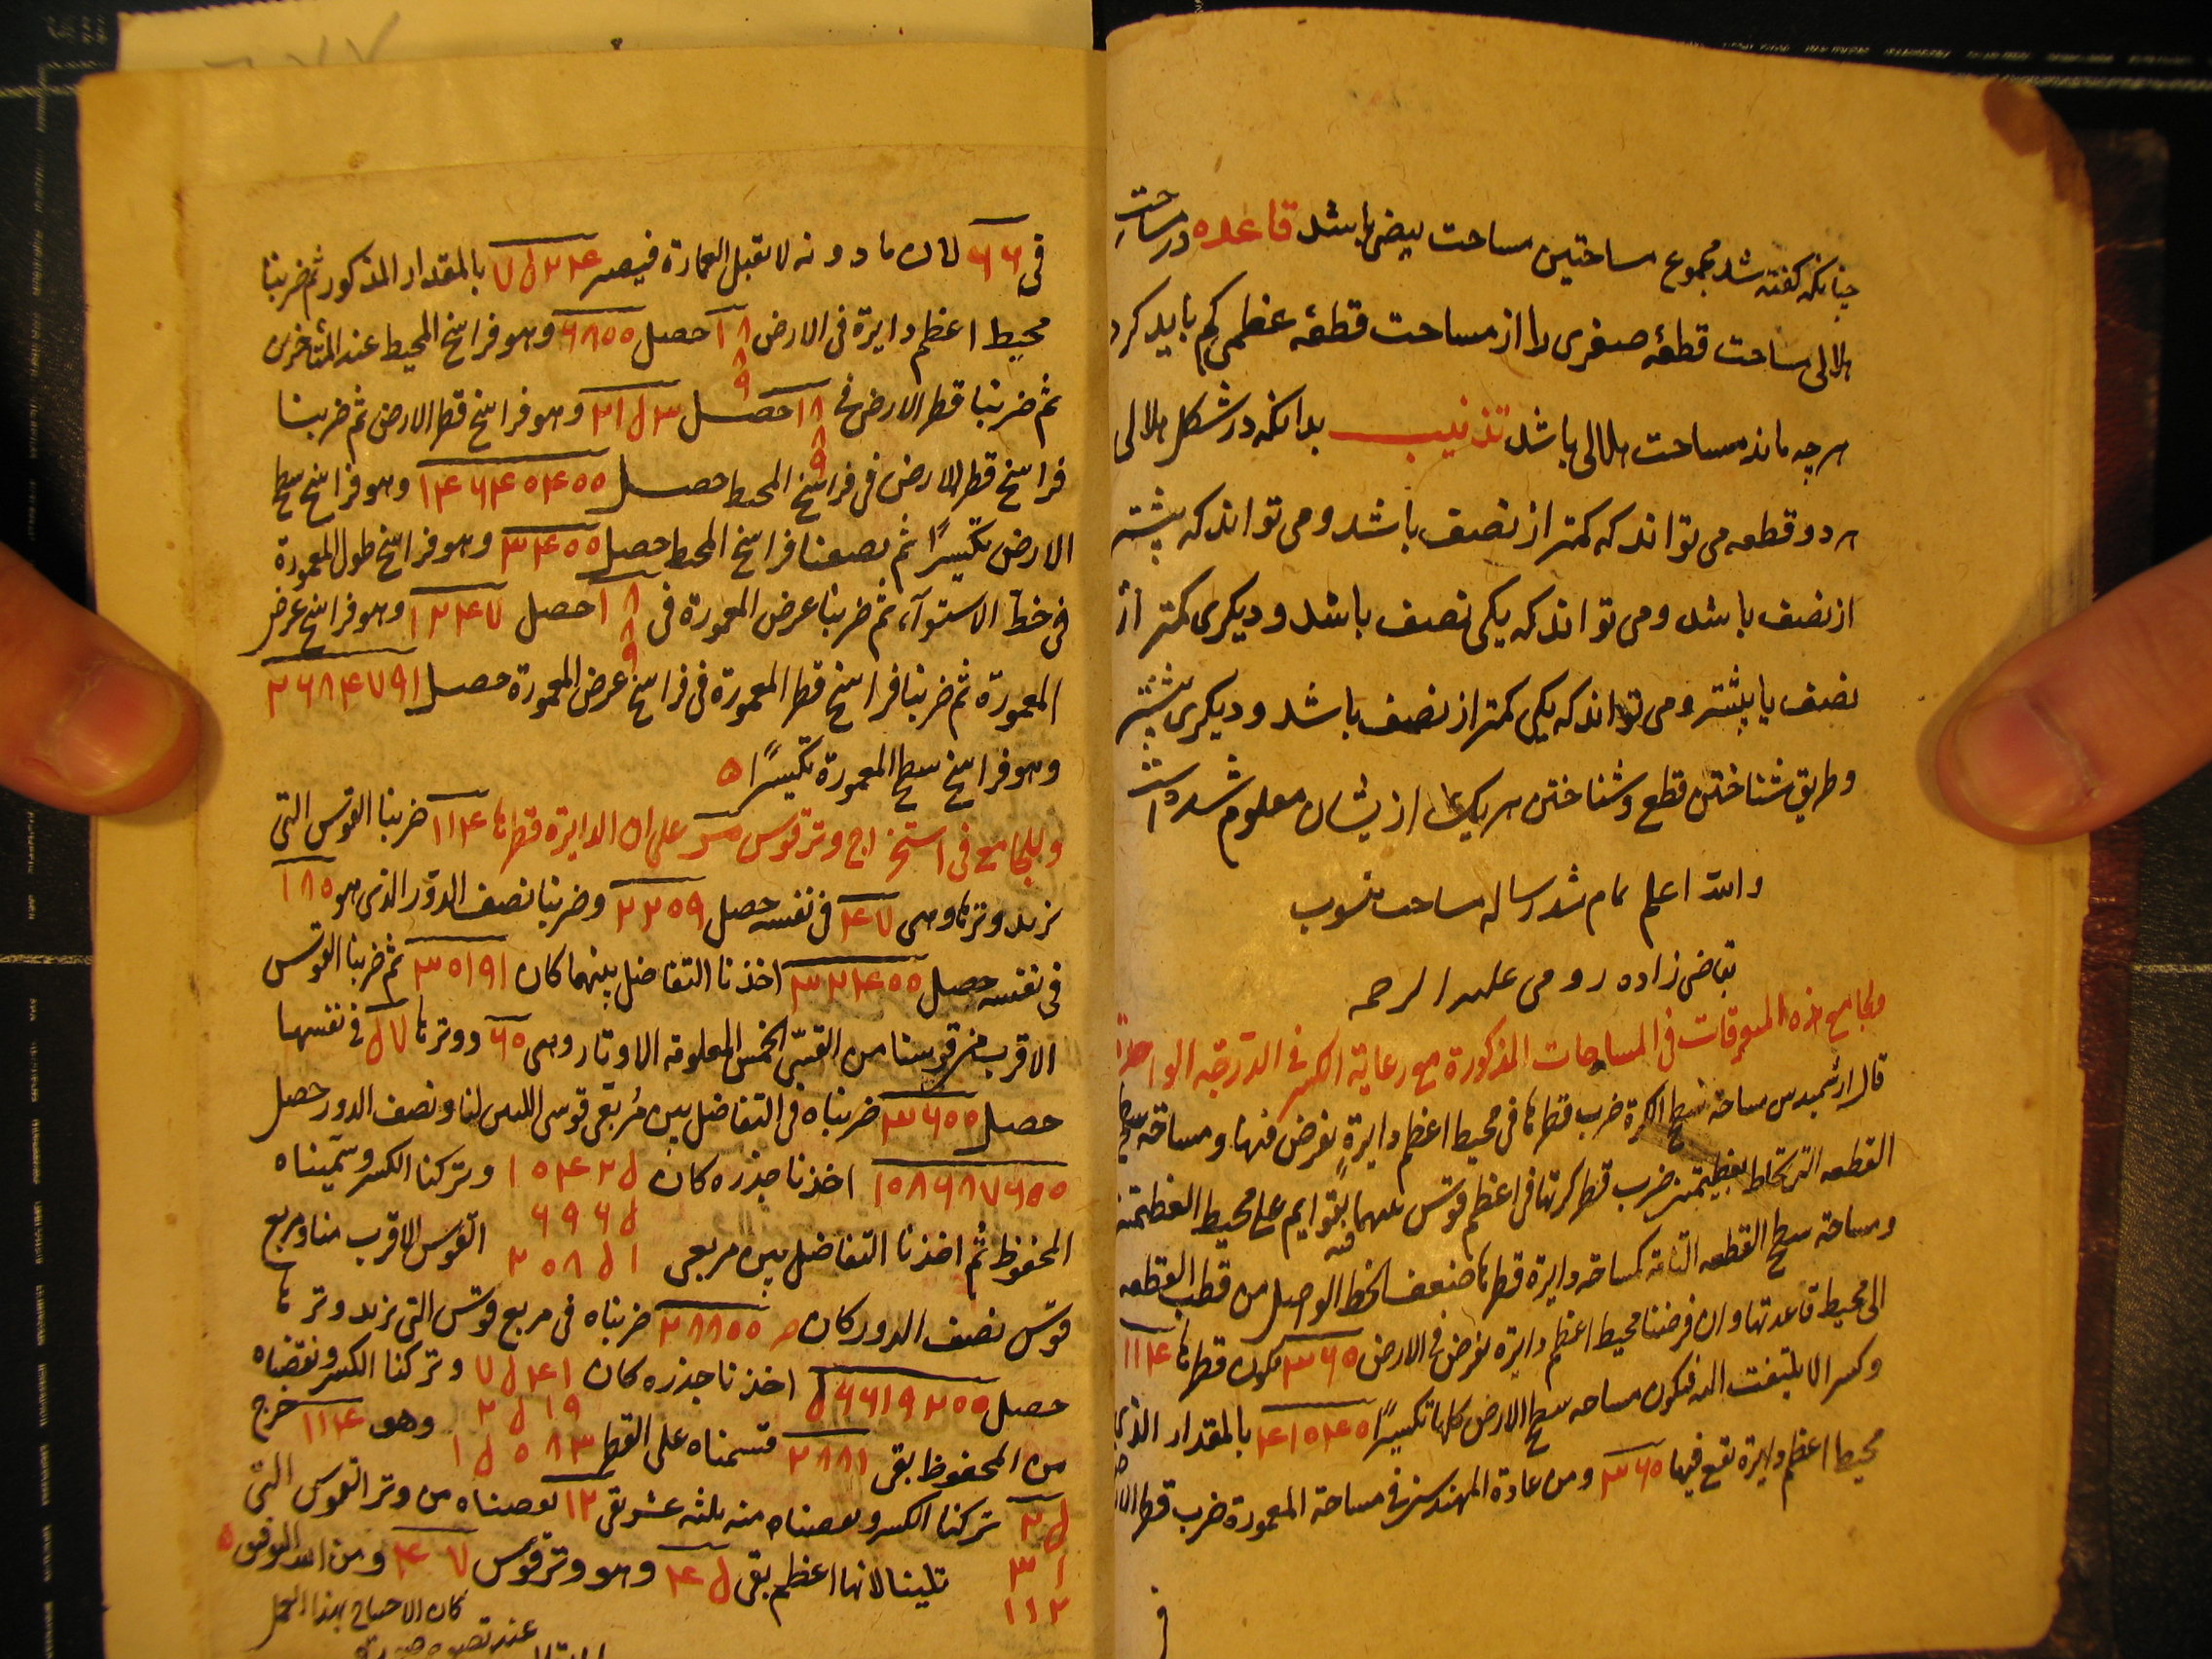 چنانکه گفته شد مجموع مساحتین مساحت بیضی باشد قاعده در مساحت
هلالی مساحت قطعهٔ صغری را از مساحت قطعهٔ عظمی کم باید کرد
هرچه ماند مساحت هلالی باشد تذنیب بدانکه در شکل هلالی
هر دو قطعه می تواند که کمتر از نصف باشد و می تواند که بیشتر
از نصف باشد و می تواند که یکی نصف باشد و دیگری کمتر از
نصف یا بیشتر و می تواند که یکی کمتر از نصف باشد و دیگری بیشتر
و طریق شناختن قطع و شناختن هر یک از یشان معلوم شده است
والله اعلم تمام شد رساله مساحت منسوب
بقاضی زاده رومی علیه الرحمه
ولجامع هذه المسوقات فی المساحات المذکورة مع رعایة الکسر فی الدرجة الواحدة
قال ارشمیدس مساحة سطح الکرة ضرب قطرها فی محیط اعظم دایرة یفرض فیها ومساحة سطح
القطعه التی تحاط بعظیمتین ضرب قطر کرتها فی اعظم قوس بینهما بقوایم علی محیط العظیمتین
ومساحة سطح القطعه التامة کمساحة دایرة قطرها ضعف الخط الواصل من قطب القطعه
الی محیط قاعدتها وان فرضنا محیط اعظم دایرة یفرض فی الارض ۳۶۰ یکون قطرها ۱۱۴
وکسر الا یلتفت الیه فیکون مساحه سطح الارض کلها تکسیرًا ۴۱۰۴۰ بالمقدار الذی
محیط اعظم دایرة تقع فیها ۳۶۰ ومن عادة المهندسین فی مساحة المعمورة ضرب قطر
فی ۶۶ لان ما دونه لا تقبل العمارة فیصیر ۷۵۲۴ بالمقدار المذکور ثم ضربنا
محیط اعظم دایرة فی الارض ۱۸ ۸ ۹ حصل ۶۸۰۰ وهو فراسخ المحیط عند المتأخرین
ثم ضربنا قطر الارض فی ۱۸ ۸ ۹ حصل ۲۱۵۳ وهو فراسخ قطر الارض ثم ضربنا
فراسخ قطر الارض فی فراسخ المحیط حصل ۱۴۶۴۰۴۰۰ وهو فراسخ سطح
الارض تکسیرًا ثم نصفنا فراسخ المحیط حصل ۳۴۰۰ وهو فراسخ طول المعمورة
فی خط الاستوآء ثم ضربنا عرض المعمورة فی ۱۸ ۸ ۹ حصل ۱۲۴۷ وهو فراسخ عرض
المعمورة ثم ضربنا فراسخ قطر المعمورة فی فراسخ عرض المعمورة حصل ۲۶۸۴۷۹۱
وهو فراسخ سطح المعمورة تکسیرًا ه
وللجامع فی استخراج وتر قوس علی ان الدایرة قطرها ۱۱۴ ضربنا القوس التی
نرید وترها وهی ۴۷ فی نفسه حصل ۲۲۰۹ وضربنا نصف الدور الذی هو ۱۸۰
فی نفسه حصل ۳۲۴۰۰ اخذنا التفاضل بینهما کان ۳۰۱۹۱ ثم ضربنا القوس
الاقرب من قوسنا من القسی الخمس المعلومة الاوتار وهی ۶۰ ووترها ۵۷ فی نفسها
حصل ۳۶۰۰ ضربناه فی التفاضل بین مربعی قوسی اللتین لنا ونصف الدور حصل
۱۰۸۶۸۷۶۰۰ اخذنا جذره کان ۱۰۴۲۵ وترکنا الکسر وسمیناه
۶۹۶۵
المحفوظ ثم اخذنا التفاضل بین مربعی ۲۰۸۵۱ القوس الاقرب منا ومربع
قوس نصف الدور کان ۲۸۸۰۰ ضربناه فی مربع قوس التی نرید وترها
حصل ۶۳۶۱۹۲۰۰ اخذنا جذره کان ۷۵۴۱ وترکنا الکسر ونقصناه
۲۵۱۹
من المحفوظ بقی ۲۸۸۱ قسمناه علی القطر ۱۵۰۸۳ وهو ۱۱۴ خرج
۲۵ ترکنا الکسر ونقصناه منه ثلثه عشر بقی ۱۲ نقصناه من وتر القوس التی
۳۱
تلینا لانها اعظم بقی ۴۵ وهو وتر قوس ۴۷ ومن الله التوفیق ه
۱۱۲
کان الاحتیاج بهذا العمل